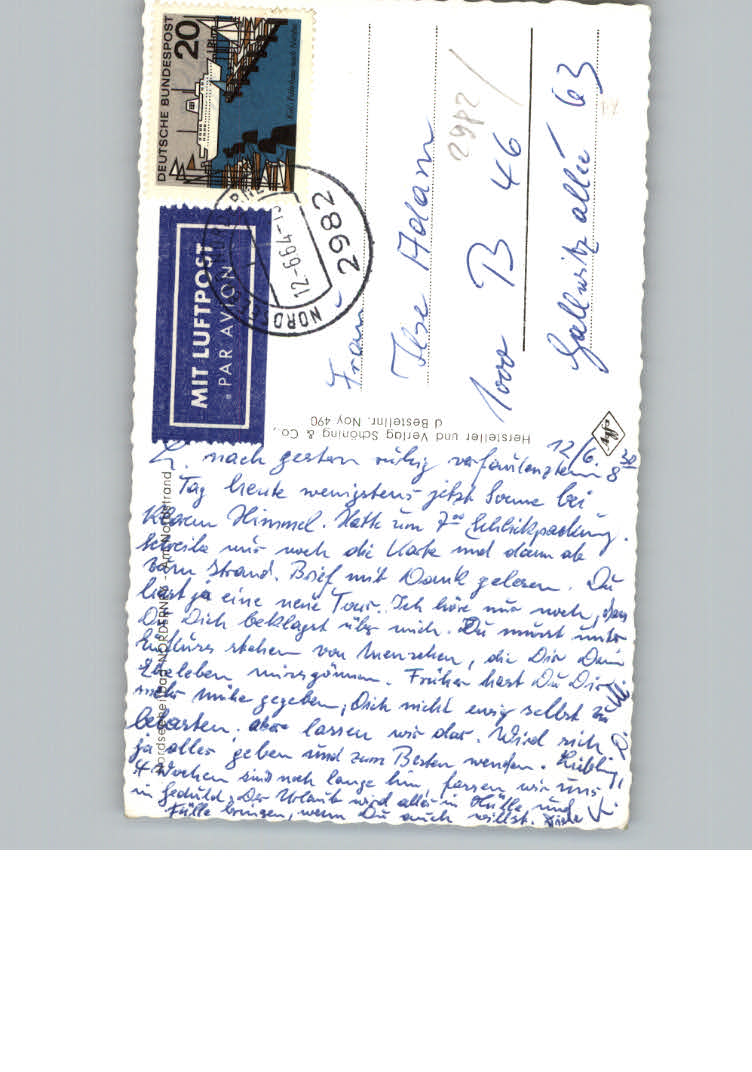 DEUTSCHE BUNDESPOST
20
MIT LUFTPOST
PAR AVION
NORD
12.-6.64-13
2982
2982
Frau
Ilse Adam
1000 B 46
Gallwitzallee 63
Hersteller und Verlag Schöning & Co.,
d Bestellnr. Noy 490
Agfa
Nordseeheilbad NORDERNEY - Am Nordstrand
12/6. 8 30
L. nach gestern ruhig verfaulenztem
Tag heute wenigstens jetzt Sonne bei
klarem Himmel. Hatte um 7 00 Schlickpackung.
Schreibe nur noch die Karte und dann ab
zum Strand. Brief mit Dank gelesen. Du
hast ja eine neue Tour. Ich höre nur noch, dass
Du Dich beklagst über mich. Du musst unter
Einfluss stehen von Menschen, die Dir Dein
Eheleben missgönnen. Früher hast Du Dir
mehr Mühe gegeben, Dich nicht ewig selbst zu
belasten, aber lassen wir das. Wird sich
ja alles geben und zum Besten wenden. Liebling,
4 Wochen sind noch lange hin, fassen wir uns
in Geduld. Der Urlaub wird alles in Hülle und
Fülle bringen, wenn Du auch willst. Viele